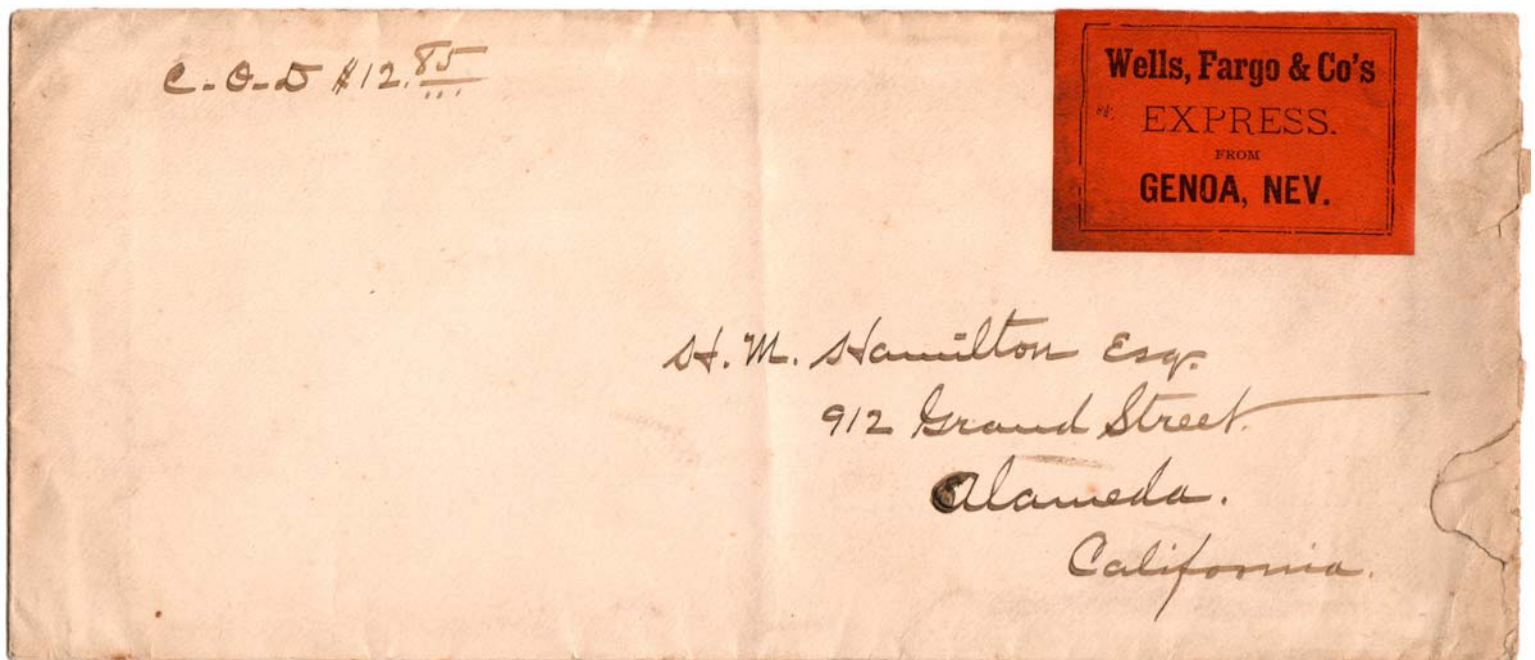 C-O-D $12.85
Wells, Fargo & Co's
EXPRESS.
FROM
GENOA, NEV.
H. M. Hamilton Esq.
912 Grand Street.
Alameda.
California.